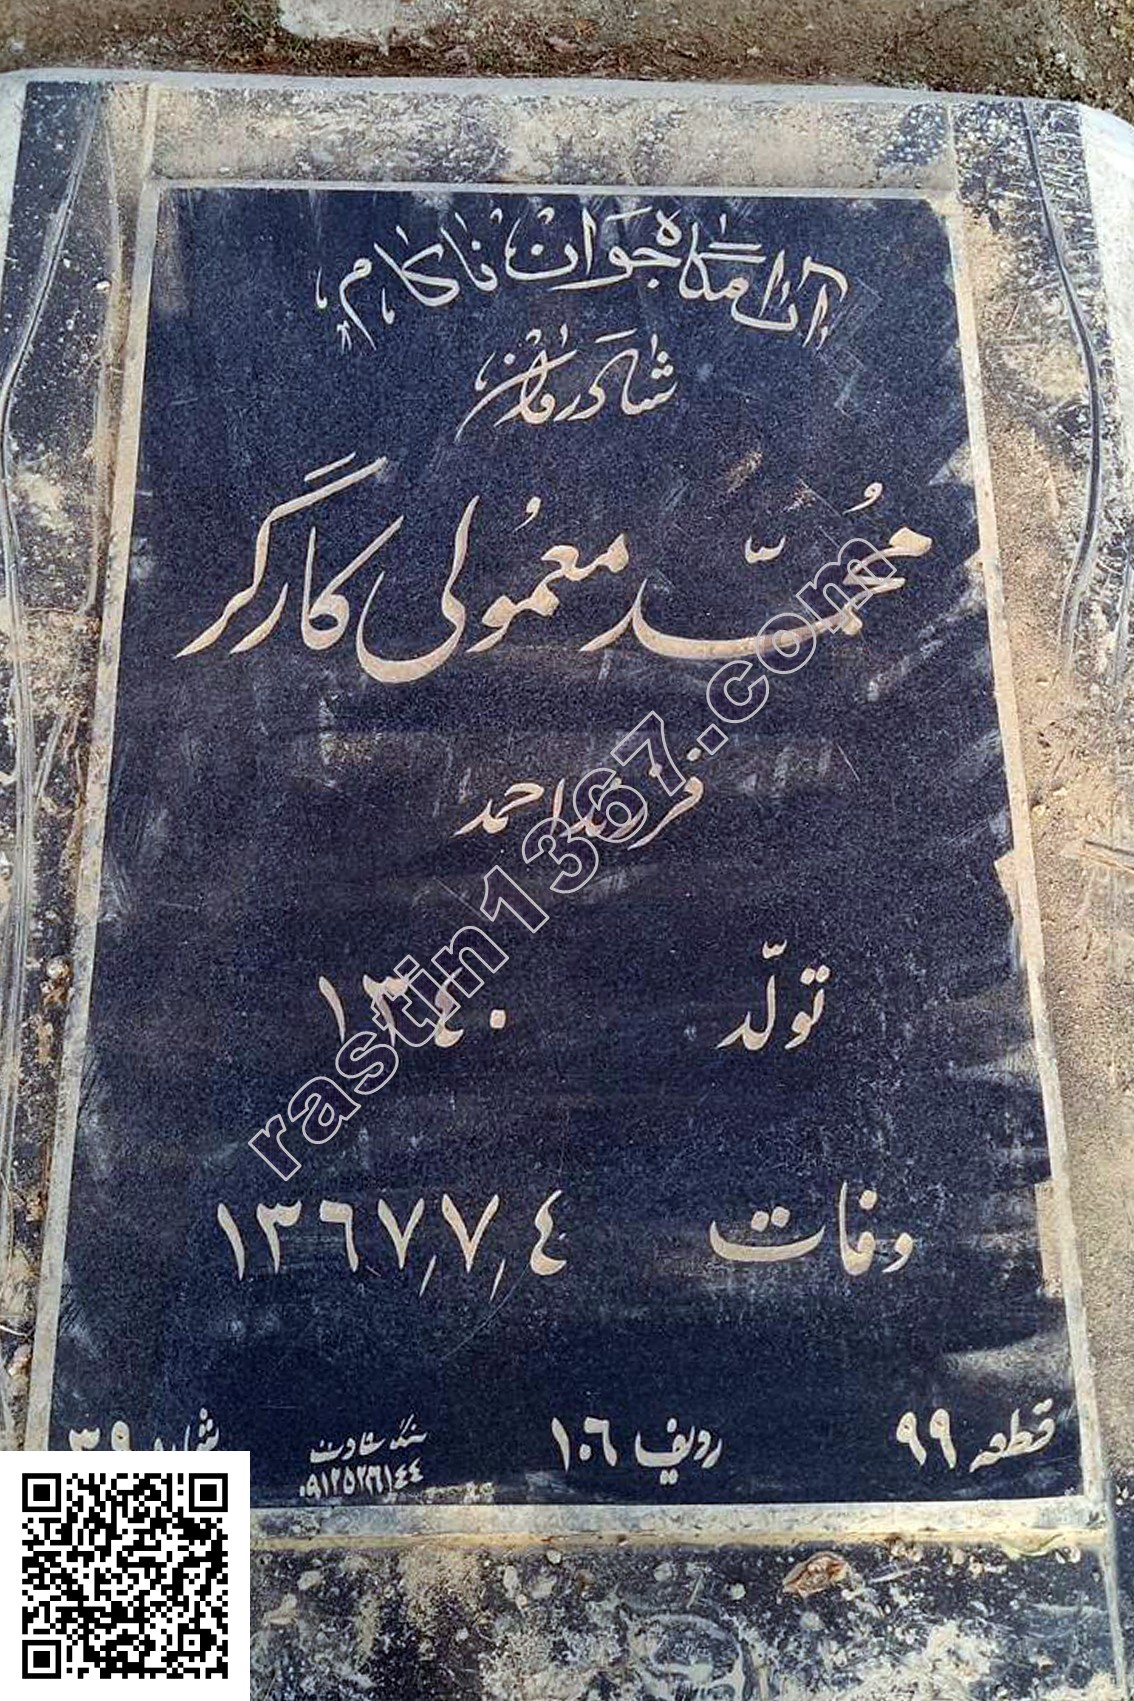 آرامگاه جوان ناکام
شادروان
محمّد معمولی کارگر
فرزند احمد
تولّد ۱۳٤۰
وفات ۱۳٦۷٫۷٫٤
قطعه ۹۹ ردیف ۱۰٦ شماره ۳۹
سنگ شاون
۰۹۱۲۵۲۲٦۱٤٤
rastin1367.com